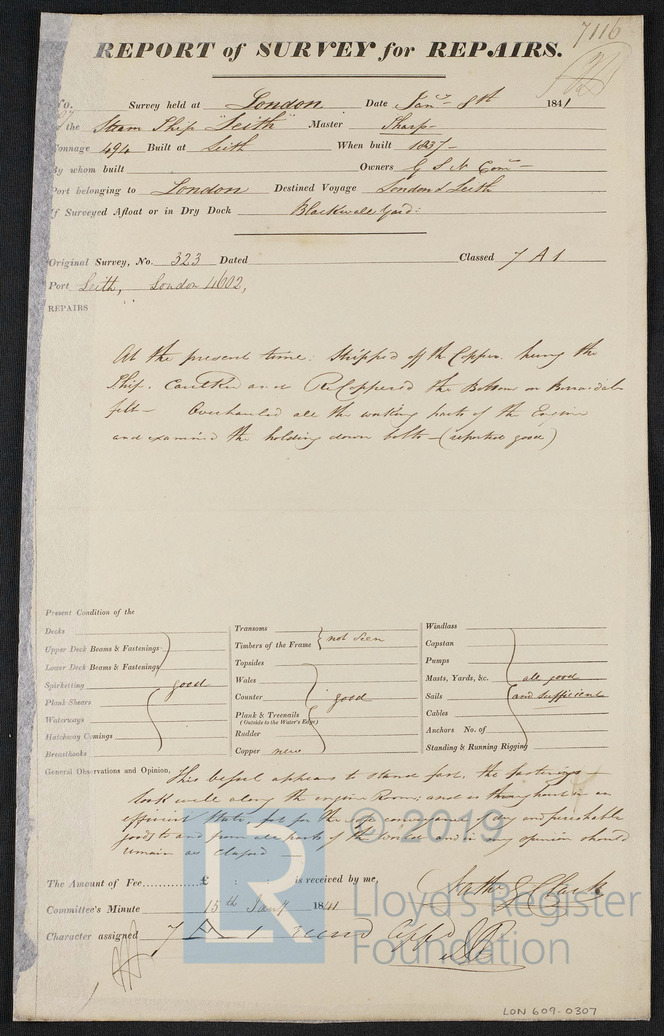 7116
REPORT of SURVEY for REPAIRS.
No. Survey held at London Date Jany 8th 1841
the Steam Ship "Leith" Master Sharp
Tonnage 494 Built at Leith When built 1837
By whom built Owners G S N Comy
Port belonging to London Destined Voyage London & Leith
If Surveyed Afloat or in Dry Dock Blackwall Yard:
Original Survey, No. 323 Dated Classed 7 A 1
Port Leith, London 4602,
REPAIRS
At the present time. Stripped off the Copper. hung the
Ship. Caulked and ReCoppered the Bottom on
felt - Overhauled all the working parts of the Engine
and examined the holding down bolts - (reported good)
Present Condition of the
Decks
Upper Deck Beams & Fastenings
Lower Deck Beams & Fastenings
Spirketting good
Plank Shears
Waterways
Hatchway Comings
Breasthooks
Transoms
Timbers of the Frame not seen
Topsides
Wales
Counter good
Plank & Treenails
(Outside to the Water's Edge)
Rudder
Copper new
Windlass
Capstan
Pumps
Masts, Yards, &c. all good
Sails and sufficient
Cables
Anchors No. of
Standing & Running Rigging
General Observations and Opinion, This vessel appears to stand fast, the fastenings
look well along the engine Room; and is throughout in an
efficient state, fit for the safe conveyance of dry and perishable
goods to and from all parts of the World and in my opinion should
remain as classed -
The Amount of Fee............£ : is received by me,
Nathl G Clark
Committee's Minute 15th Jany 1841
Character assigned 7 A 1
© 2019
Lloyd's Register
Foundation
LR
LON 609-0307